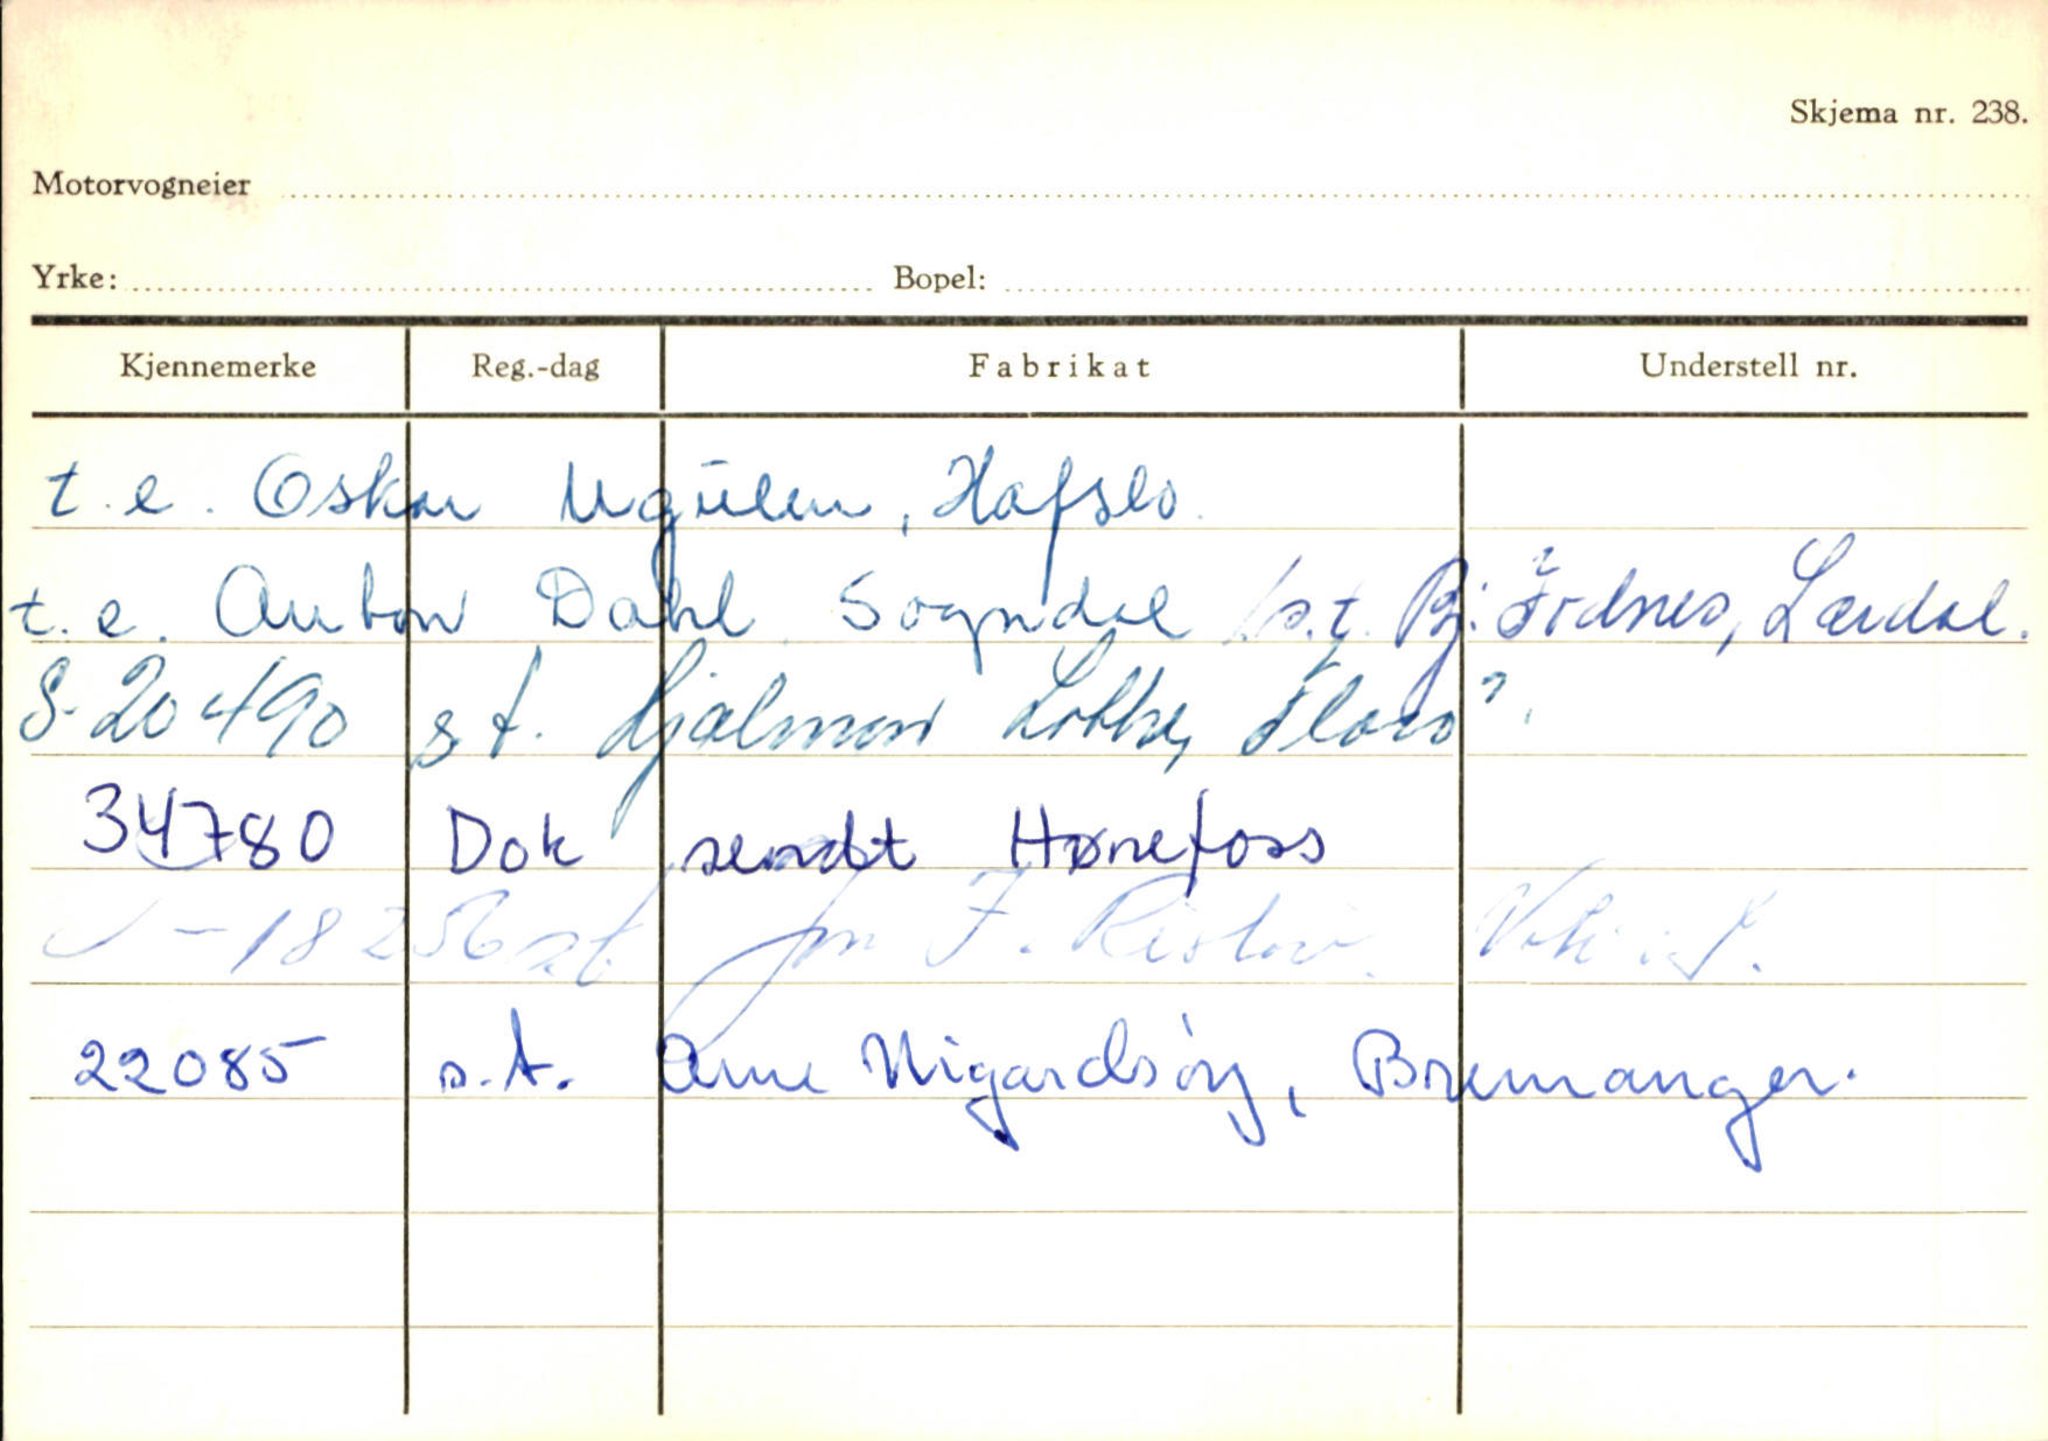 Skjema nr. 238.
Motorvogneier
Yrke: Bopel:
Kjennemerke Reg.-dag Fabrikat Understell nr.
t.e. Oskar Ugulen, Hafslo.
t.e. Anton Dahl Sogndal s.t. Bj. Lærdal.
S-20490 s.t. Hjalmar Florø
34780 Dok sendt Hønefoss
S-18256 s.t. F.
22085 s.t. Arne Nigardsøy, Bremanger.